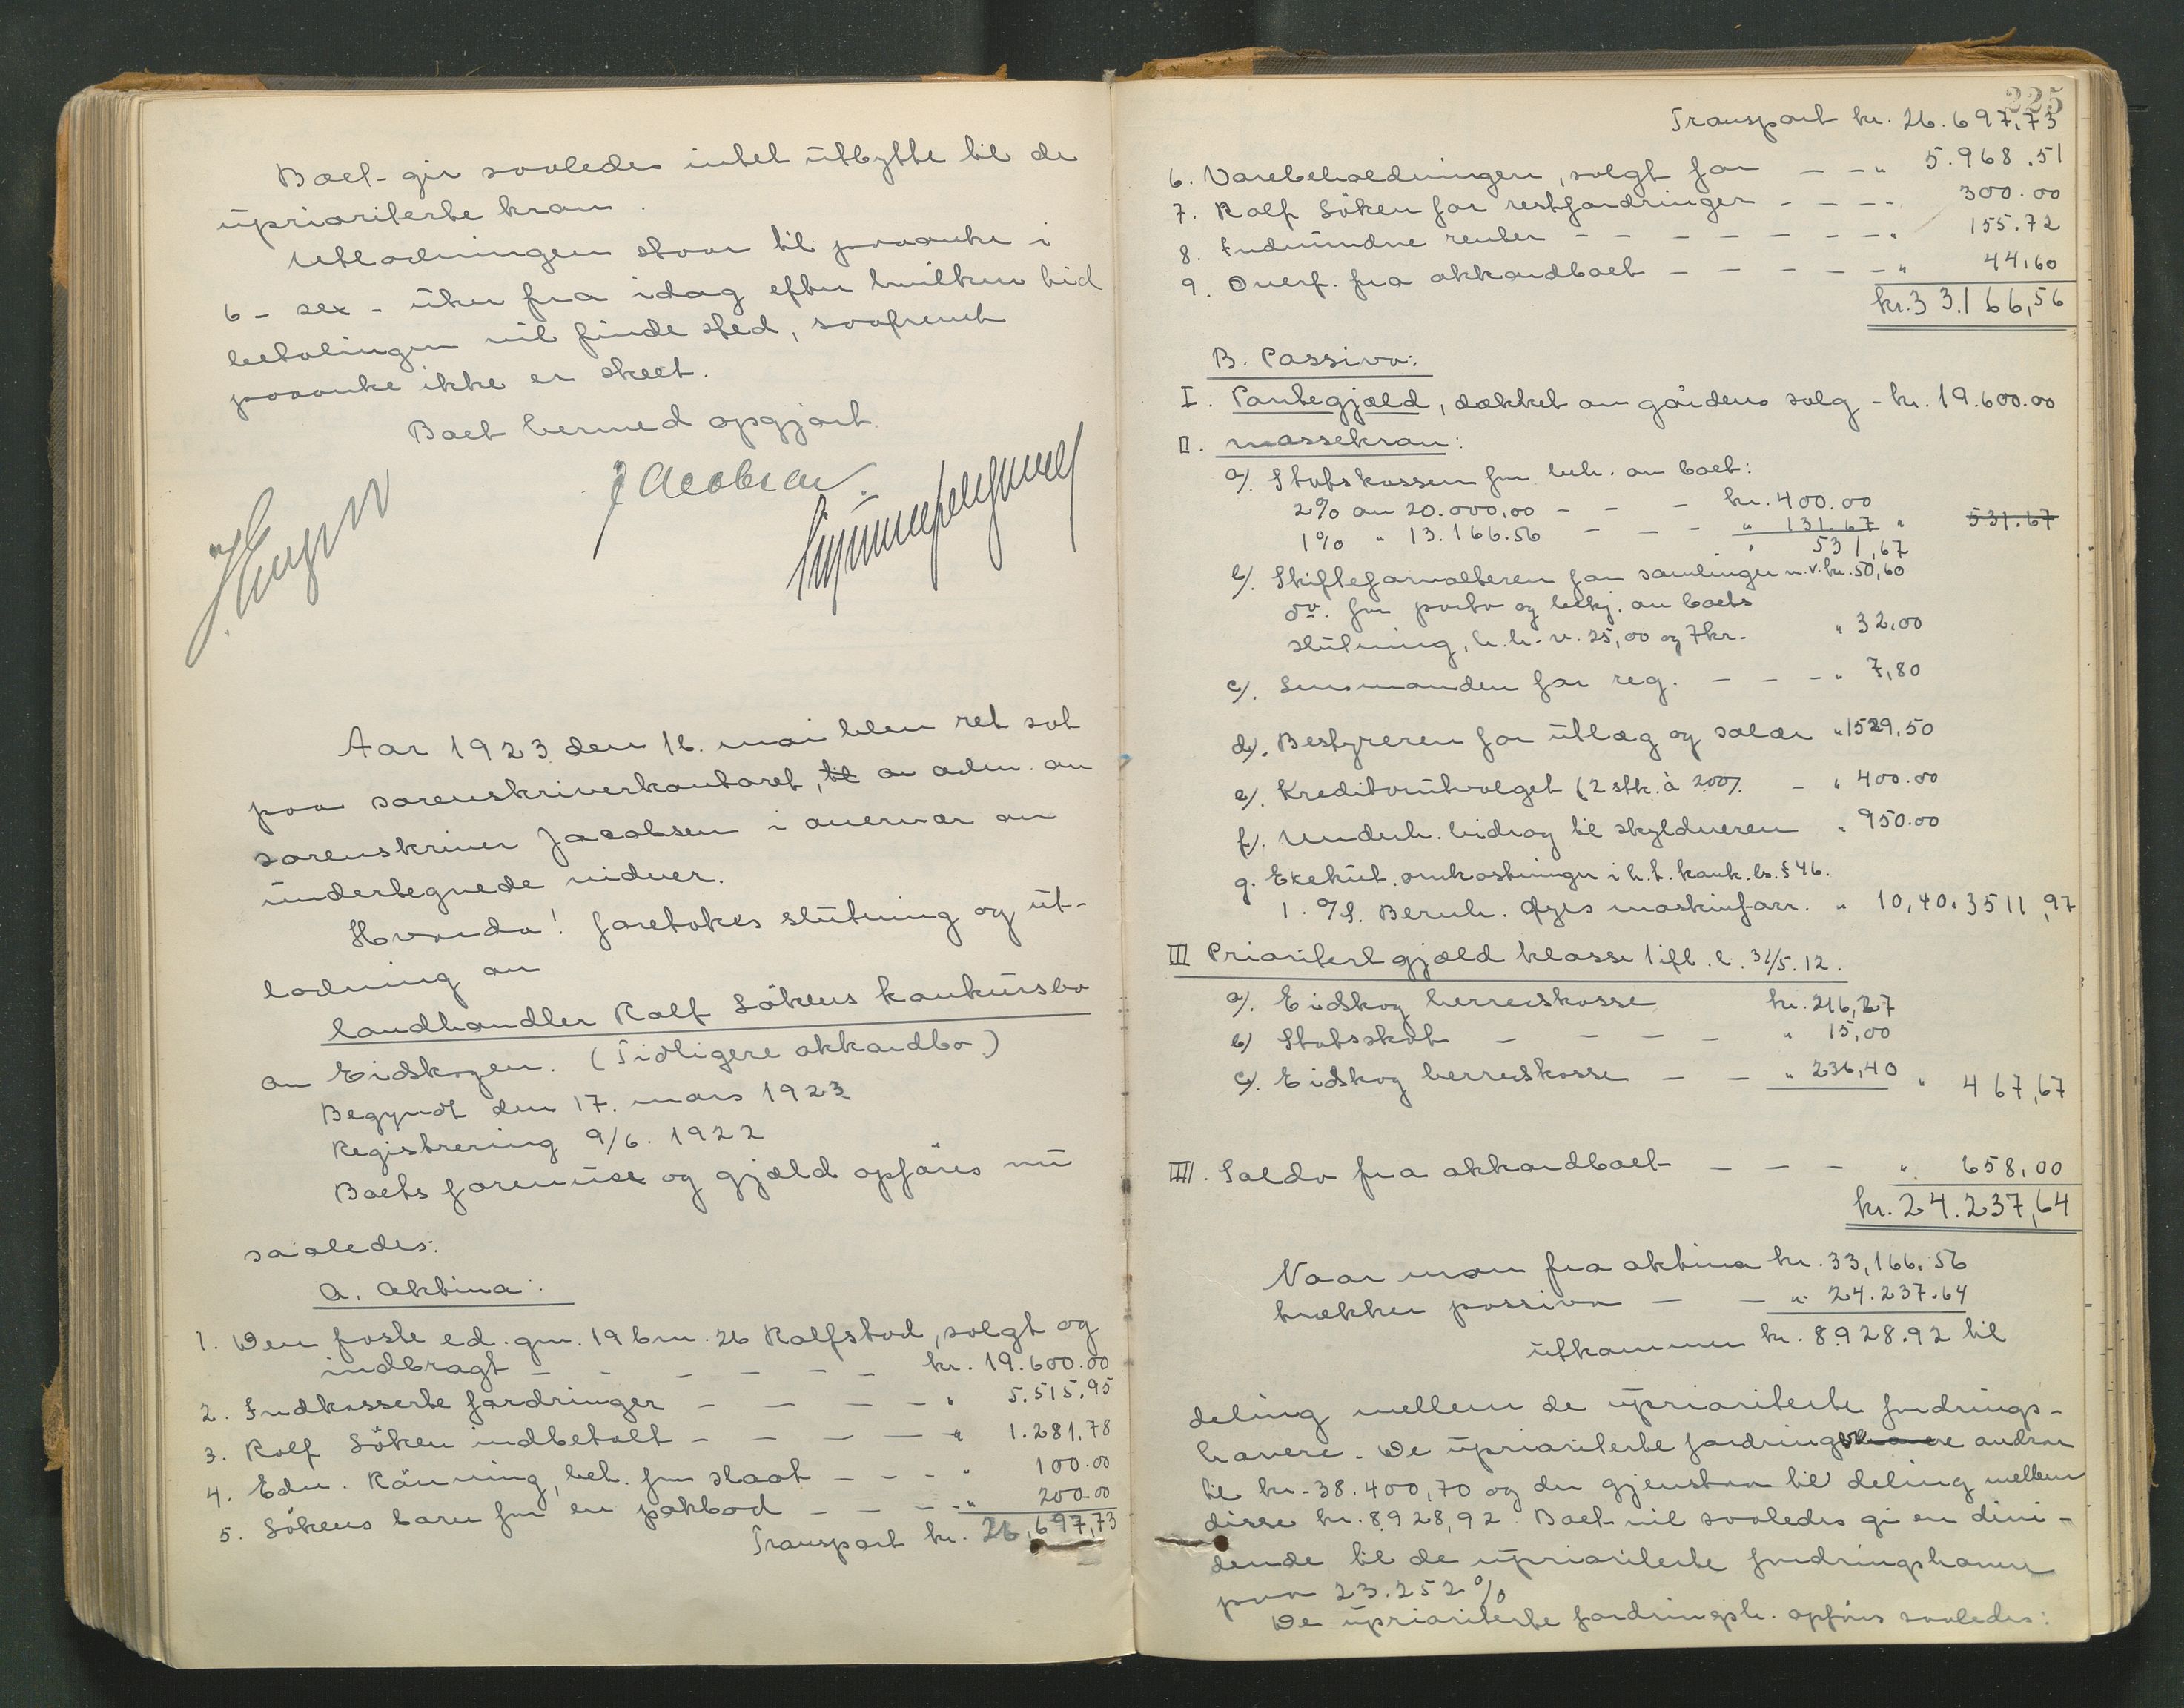 Boet gir saaledes intet utbytte til de
uprioriterte krav.
Utlodningen staar til paaanke i
6 - sex - uker fra idag efter hvilken tid
betalingen vil finde sted, saafremt
paaanke ikke er skeet.
Boet hermed opgjort.
Jacobsen
Aar 1923 den 16. mai blev ret sat
paa sorenskriverkontoret, til av adm. av
sorenskriver Jacobsen i overvær av
undertegnede vidner.
Hvorda! foretokes slutning og ut-
lodning av
landhandler Ralf Sökens konkursbo
av Eidskogen. (Tidligere akkordbo)
Begyndt den 17. mars 1923
Registrering 9/6. 1922
Boets formue og gjæld opföres nu
saaledes:
A. Aktiva:
1. Den faste ed. gnr. 19 bnr. 26 Ralfstad, solgt og
indbragt - - - - - - kr. 19.600.00
2. Indkasserte fordringer - - - - " 5.515.95
3. Rolf Söken indbetalt - - - - " 1.281,78
4. Edv. Rönning, bet. for slaat - - - " 100.00
5. Sökens barn for en pakbod - - - " 200.00
Transport kr. 26,697,73
225
Transport kr. 26.697,73
6. Varebeholdningen, solgt for - - " 5.968.51
7. Ralf Söken for restfordringer - - - " 300.00
8. Indvundne renter - - - - - - - " 155.72
9. Overf. fra akkordboet - - - - - " 44,60
kr. 33.166,56
B. Passiva:
I. Pantegjæld, dækket av gårdens salg - kr. 19.600.00
II. Massekrav:
a). Statskassen for beh. av boet:
2% av 20.000,00 - - - kr. 400.00
1% " 13.166.56 - - - " 131.67 " 531.67
" 531,67
b). Skifteforvalteren for samlinger m.v. kr. 50,60
do. for porto og bekj. av boets
slutning, h.h.v. 25,00 og 7 kr. " 32,00
c). Lensmanden for reg. - - - " 7,80
d). Bestyreren for utlæg og salær " 1529,50
e). Kreditorutvalget (2 stk. à 200). - " 400.00
f). Underh. bidrag til skyldneren " 950.00
g. Exekut. omkostninger i h.t. konk. ls. § 46.
1. A/S. Bernh. Øyes maskinforr. " 10,40. 3511,97
III Prioritert gjæld klasse 1 ifl. l. 31/5.12.
a). Eidskog herredskasse kr. 216,27
b) Statsskat - - - - " 15,00
c). Eidskog herredskasse - - " 236,40 " 467,67
IIII. Saldo fra akkordboet - - - " 658,00
kr. 24.237,64
Naar man fra aktiva kr. 33,166.56
trækker passiva - - " 24.237.64
utkommer kr. 8.928.92 til
deling mellem de uprioriterte fordrings-
havere. De uprioriterte fordringshavere andrar
til kr. 38.400,70 og der gjenstaar til deling mellem
disse kr. 8.928,92. Boet vil saaledes gi en divi-
dende til de uprioriterte fordringshavere
paa 23.252%
De uprioriterte fordringsh. opföres saaledes: